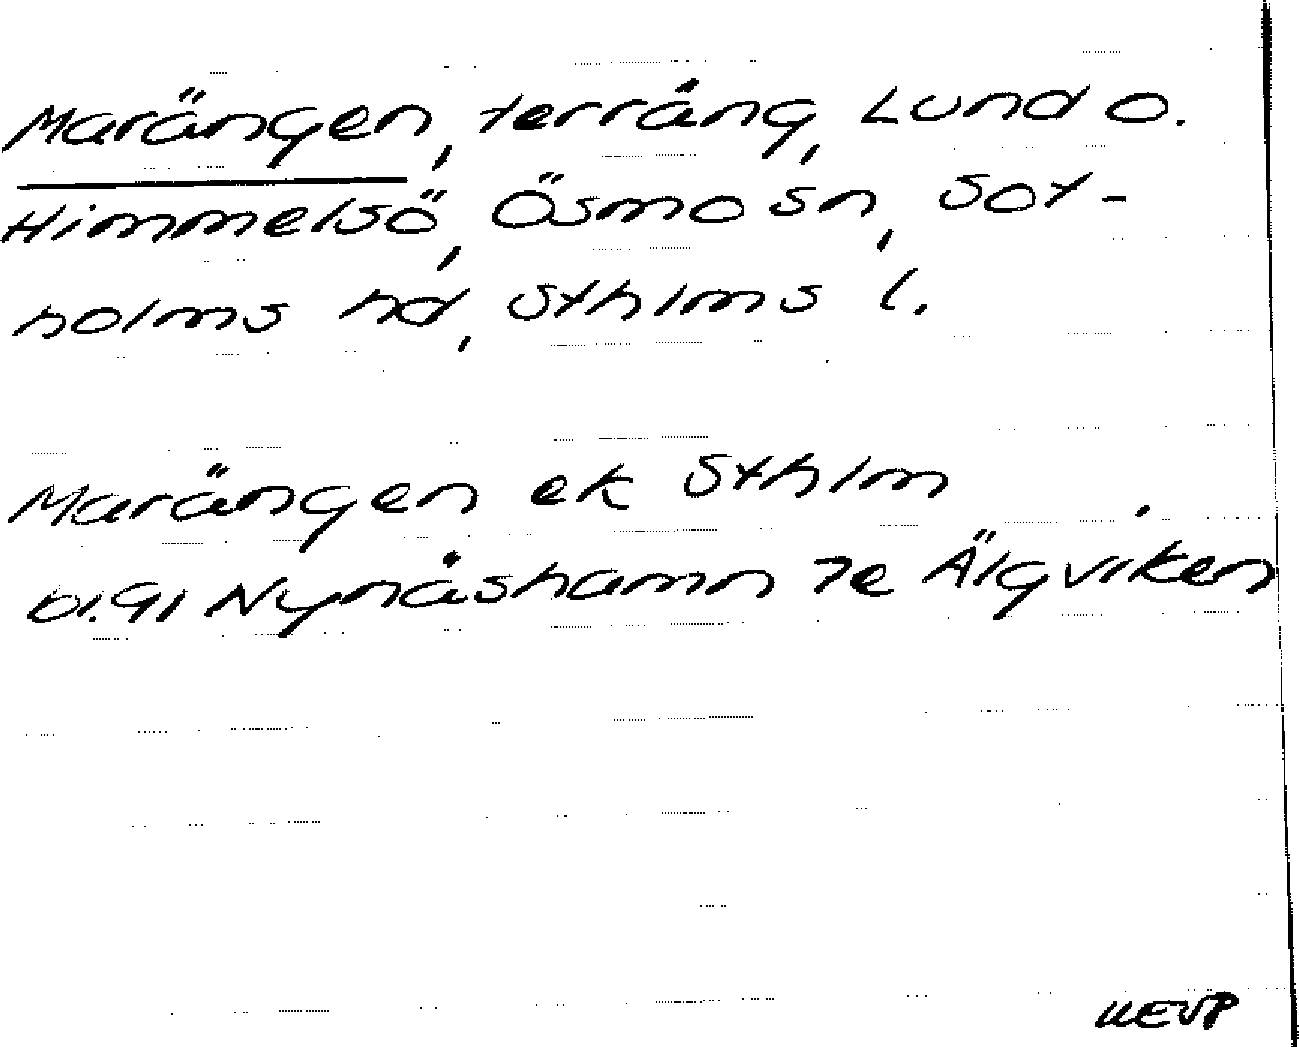 Marängen, terräng, Lund o.
Himmelsö, Ösmo sn, Sot-
holms hd, Sthlms l.
Marängen ek Sthlm
bl. 91 Nynäshamn 7e Älgviken